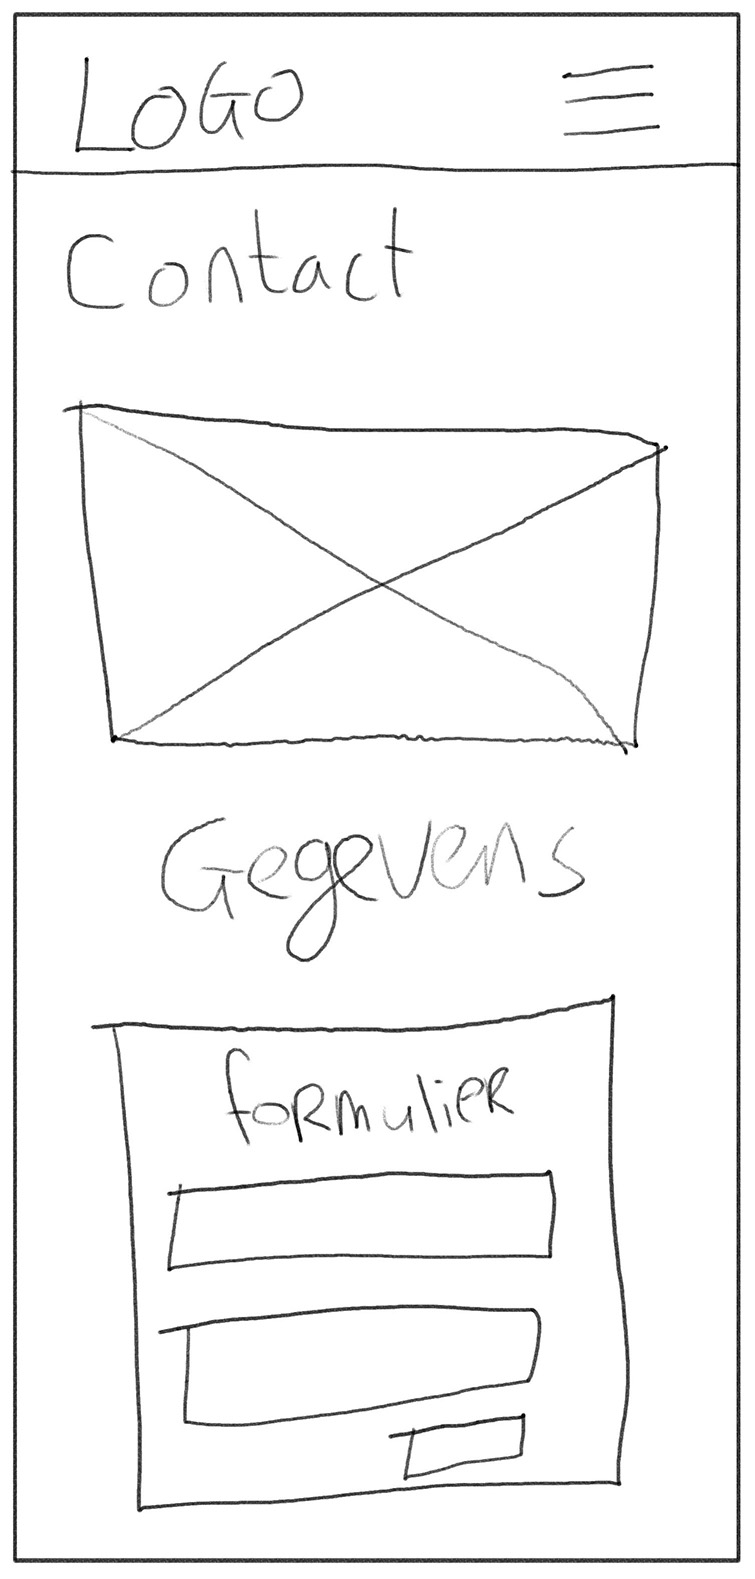 LOGO
Contact
Gegevens
formulier